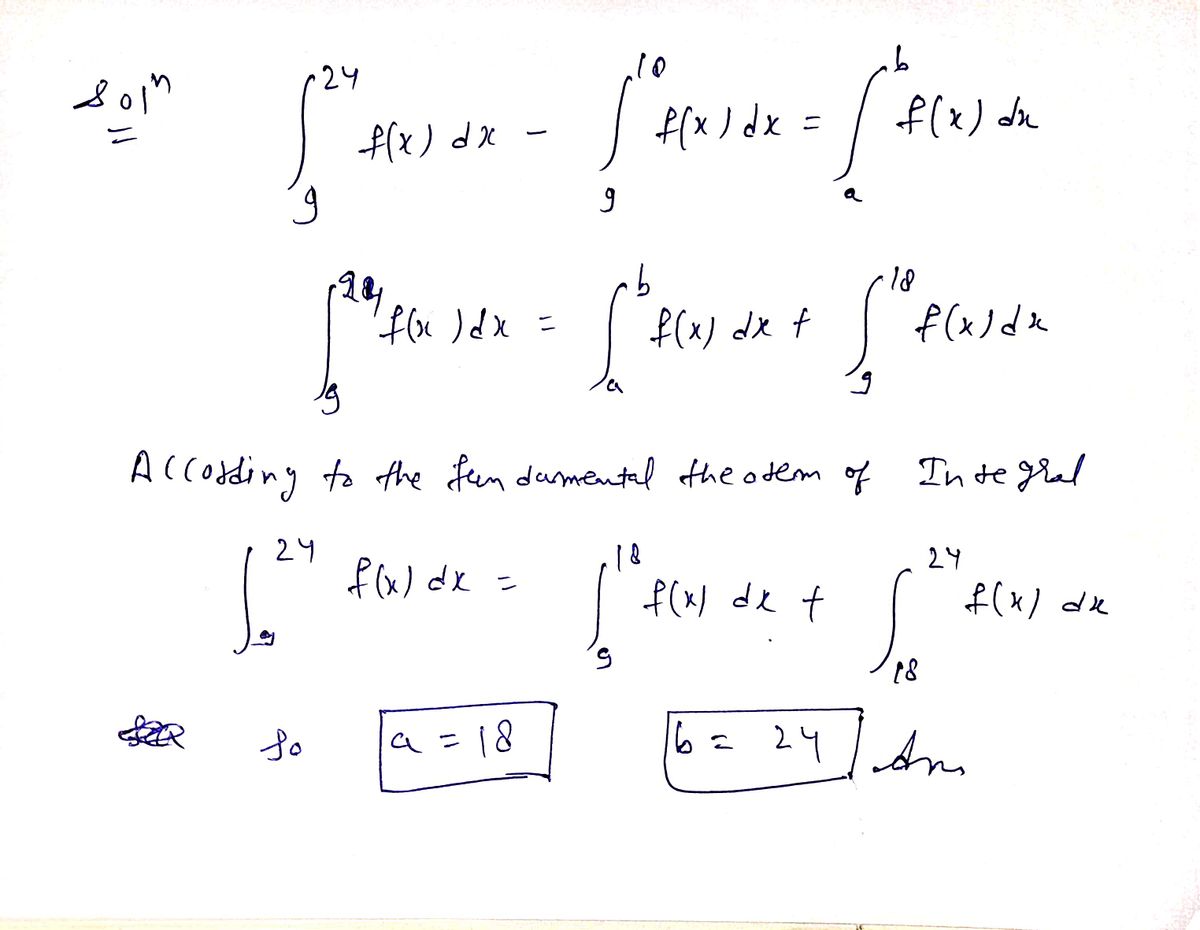 Solⁿ ∫₉²⁴ f(x) dx - ∫₉¹⁸ f(x) dx = ∫ₐᵇ f(x) dx
∫₉²⁴ f(x) dx = ∫ₐᵇ f(x) dx + ∫₉¹⁸ f(x) dx
According to the fundamental theorem of Integral
∫₉²⁴ f(x) dx = ∫₉¹⁸ f(x) dx + ∫₁₈²⁴ f(x) dx
So a = 18 b = 24 Ans